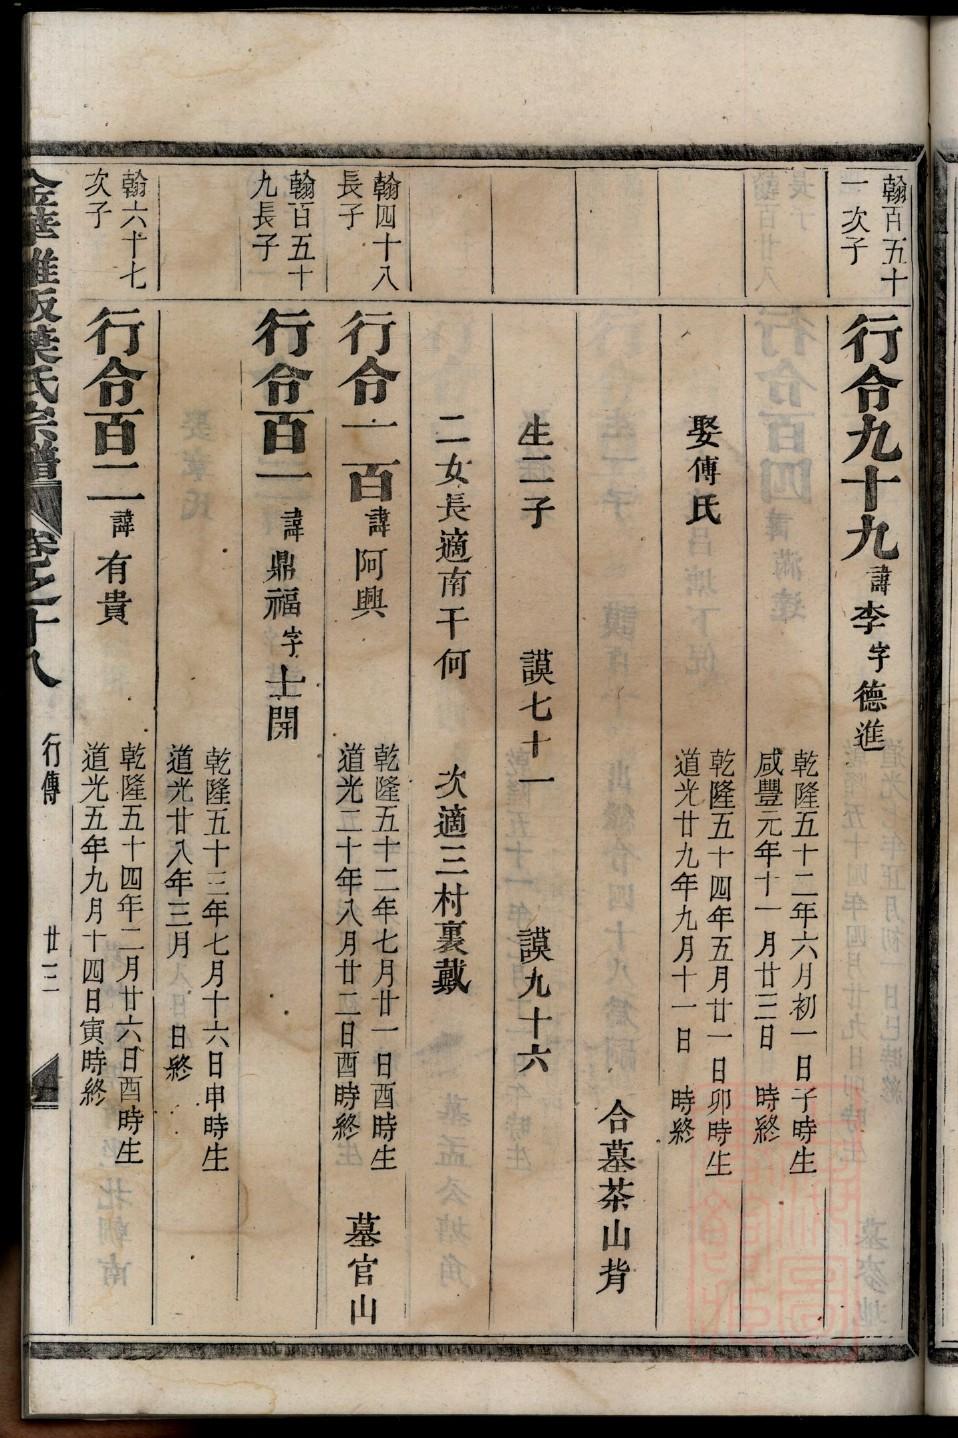 翰百五十
一次子
行令九十九諱李字德進
乾隆五十二年六月初一日子時生
咸豐元年十一月廿三日　時終
娶傅氏
乾隆五十四年五月廿一日卯時生
道光廿九年九月十一日　時終
合墓茶山背
生二子　謨七十一　謨九十六
二女長適南干何　次適三村裏戴
翰四十八
長子
行令一百諱阿興
乾隆五十二年七月廿一日酉時生
道光二十年八月廿二日酉時終
墓官山
翰百五十
九長子
行令百一諱鼎福字士開
乾隆五十三年七月十六日申時生
道光廿八年三月　日終
翰六十七
次子
行令百二諱有貴
乾隆五十四年二月廿六日酉時生
道光五年九月十四日寅時終
金華雅畈葉氏宗譜　卷之十八　行傳　廿三